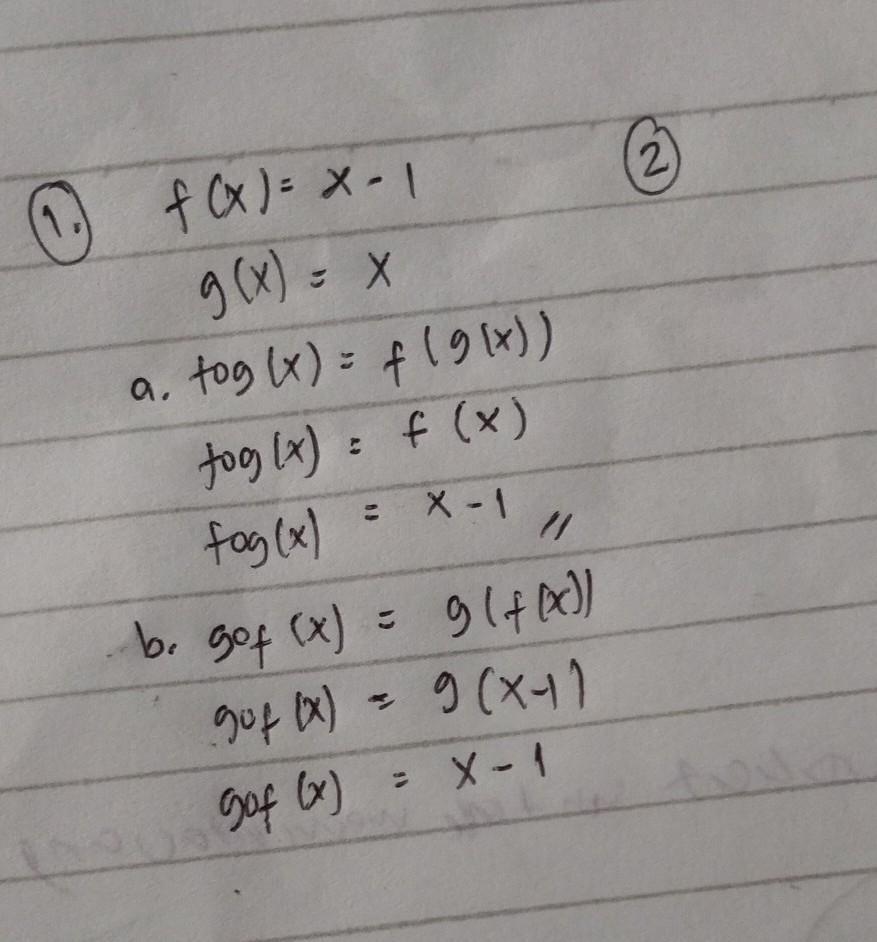 1. f(x) = x - 1
g(x) = x
a. fog(x) = f(g(x))
fog(x) = f(x)
fog(x) = x - 1 //
b. gof(x) = g(f(x))
gof(x) = g(x-1)
gof(x) = x - 1
2